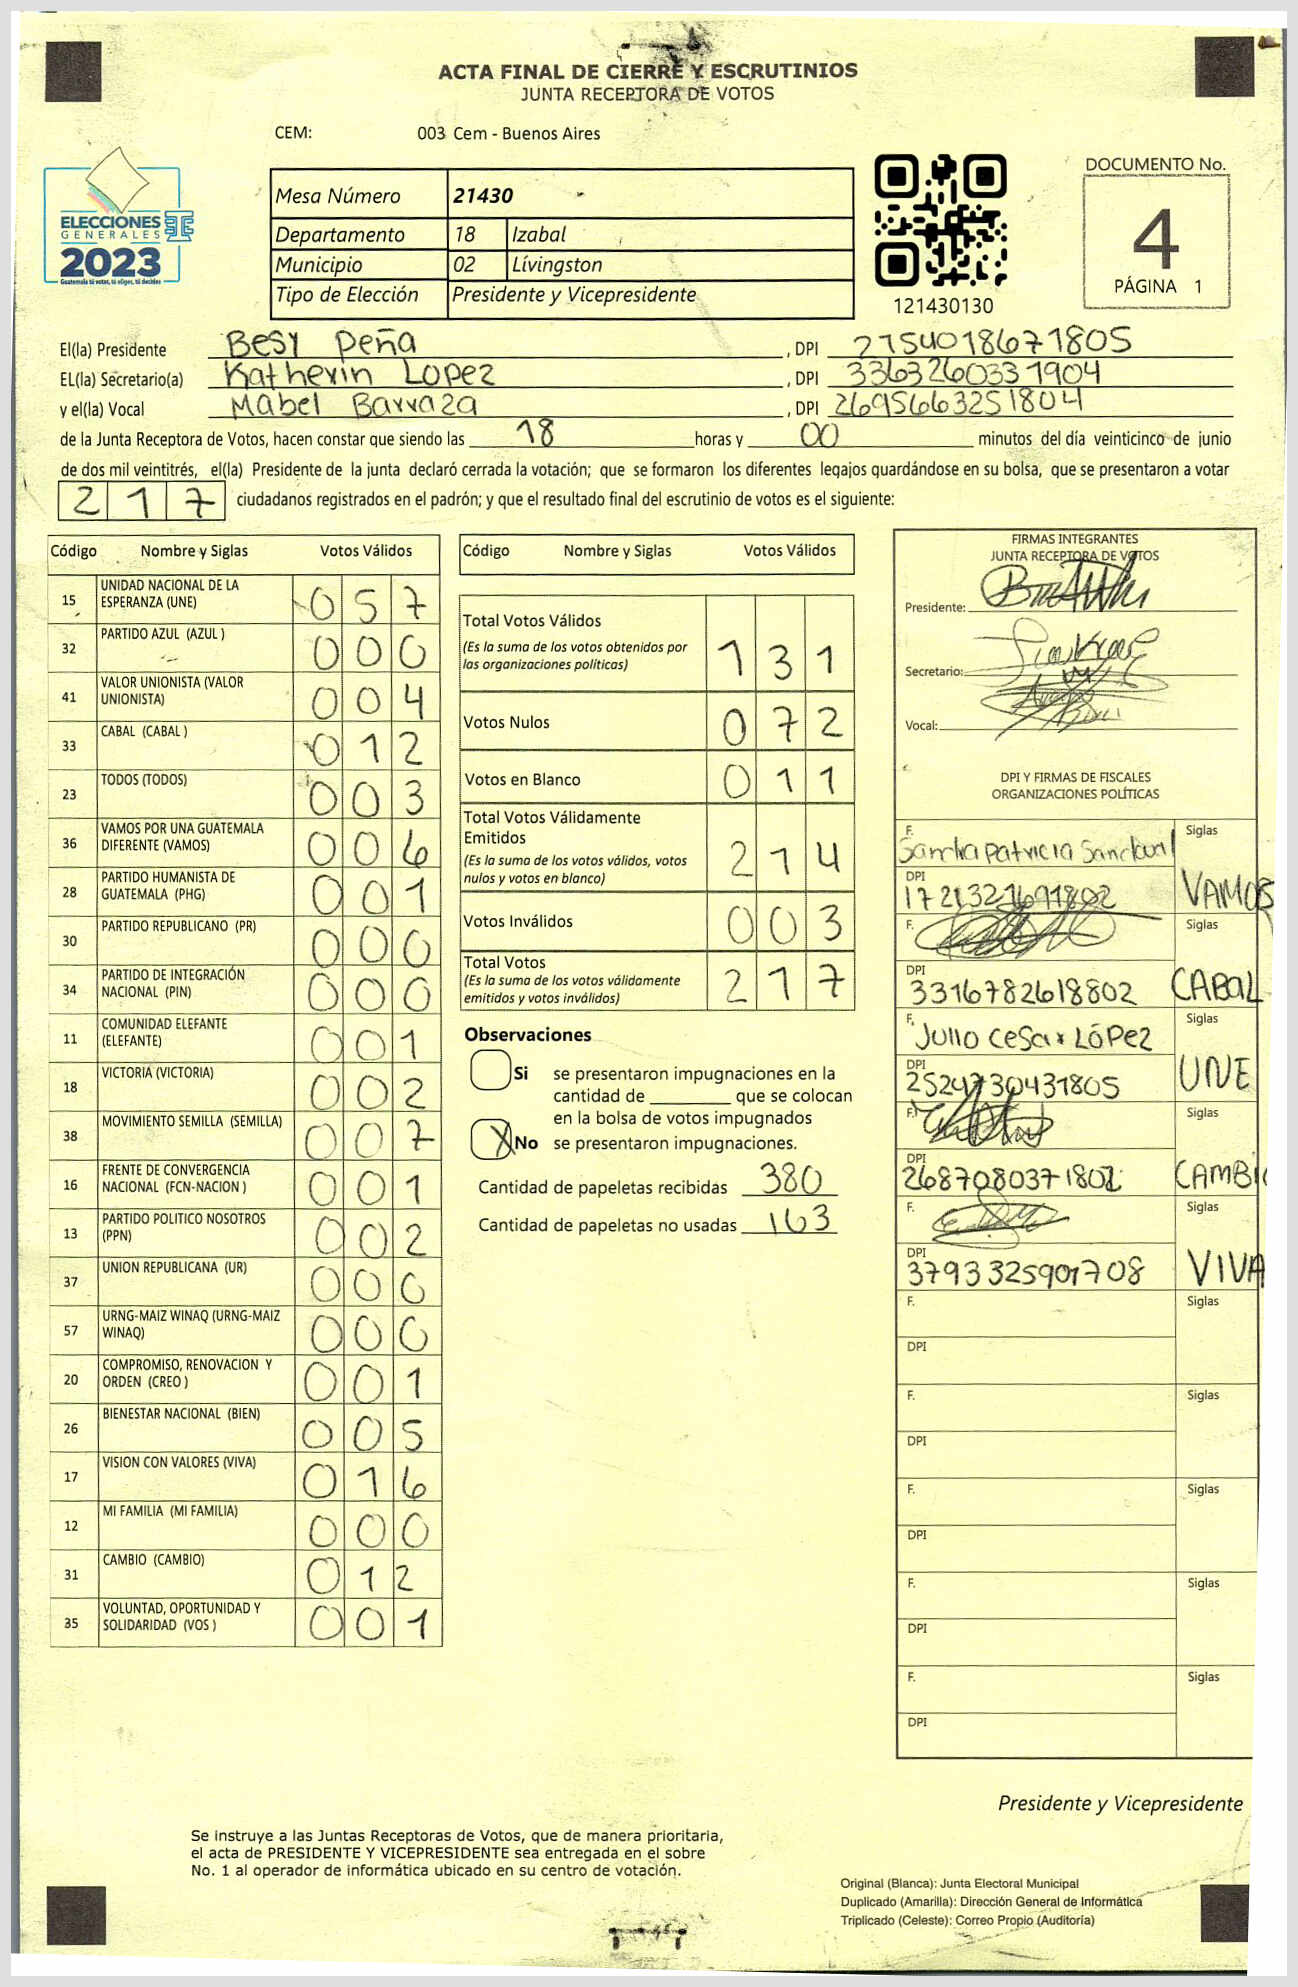 ACTA FINAL DE CIERRE Y ESCRUTINIOS
JUNTA RECEPTORA DE VOTOS
CEM: 003 Cem - Buenos Aires
ELECCIONES
GENERALES
2023
Guatemala tú votas, tú eliges, tú decides
Mesa Número 21430
Departamento 18 Izabal
Municipio 02 Lívingston
Tipo de Elección Presidente y Vicepresidente
121430130
DOCUMENTO No.
4
PÁGINA 1
El(la) Presidente Besy Peña , DPI 2754018671805
EL(la) Secretario(a) Katherin Lopez , DPI 3363260331904
y el(la) Vocal Mabel Barraza , DPI 2695663251804
de la Junta Receptora de Votos, hacen constar que siendo las 18 horas y 00 minutos del día veinticinco de junio
de dos mil veintitrés, el(la) Presidente de la junta declaró cerrada la votación; que se formaron los diferentes legajos guardándose en su bolsa, que se presentaron a votar
217 ciudadanos registrados en el padrón; y que el resultado final del escrutinio de votos es el siguiente:
Código Nombre y Siglas Votos Válidos
15 UNIDAD NACIONAL DE LA
ESPERANZA (UNE) 057
32 PARTIDO AZUL (AZUL ) 000
41 VALOR UNIONISTA (VALOR
UNIONISTA) 004
33 CABAL (CABAL ) 012
23 TODOS (TODOS) 003
36 VAMOS POR UNA GUATEMALA
DIFERENTE (VAMOS) 006
28 PARTIDO HUMANISTA DE
GUATEMALA (PHG) 001
30 PARTIDO REPUBLICANO (PR) 000
34 PARTIDO DE INTEGRACIÓN
NACIONAL (PIN) 000
11 COMUNIDAD ELEFANTE
(ELEFANTE) 001
18 VICTORIA (VICTORIA) 002
38 MOVIMIENTO SEMILLA (SEMILLA) 007
16 FRENTE DE CONVERGENCIA
NACIONAL (FCN-NACION ) 001
13 PARTIDO POLITICO NOSOTROS
(PPN) 002
37 UNION REPUBLICANA (UR) 000
57 URNG-MAIZ WINAQ (URNG-MAIZ
WINAQ) 000
20 COMPROMISO, RENOVACION Y
ORDEN (CREO ) 001
26 BIENESTAR NACIONAL (BIEN) 005
17 VISION CON VALORES (VIVA) 016
12 MI FAMILIA (MI FAMILIA) 000
31 CAMBIO (CAMBIO) 012
35 VOLUNTAD, OPORTUNIDAD Y
SOLIDARIDAD (VOS ) 001
Código Nombre y Siglas Votos Válidos
Total Votos Válidos
(Es la suma de los votos obtenidos por
las organizaciones políticas) 131
Votos Nulos 072
Votos en Blanco 011
Total Votos Válidamente
Emitidos
(Es la suma de los votos válidos, votos
nulos y votos en blanco) 214
Votos Inválidos 003
Total Votos
(Es la suma de los votos válidamente
emitidos y votos inválidos) 217
Observaciones
Si se presentaron impugnaciones en la
cantidad de ________ que se colocan
en la bolsa de votos impugnados
X No se presentaron impugnaciones.
Cantidad de papeletas recibidas 380
Cantidad de papeletas no usadas 163
FIRMAS INTEGRANTES
JUNTA RECEPTORA DE VOTOS
Presidente:
Secretario:
Vocal:
DPI Y FIRMAS DE FISCALES
ORGANIZACIONES POLÍTICAS
F. Sandra Patricia Sandoval Siglas
DPI 1721321691802 VAMOS
F. Siglas
DPI 3316782618802 CABAL
F. Julio Cesar López Siglas
DPI 2524730431805 UNE
F. Siglas
DPI 2687080371802 CAMBIO
F. Siglas
DPI 3793325901708 VIVA
F. Siglas
DPI
F. Siglas
DPI
F. Siglas
DPI
F. Siglas
DPI
F. Siglas
DPI
Presidente y Vicepresidente
Se instruye a las Juntas Receptoras de Votos, que de manera prioritaria,
el acta de PRESIDENTE Y VICEPRESIDENTE sea entregada en el sobre
No. 1 al operador de informática ubicado en su centro de votación.
Original (Blanca): Junta Electoral Municipal
Duplicado (Amarilla): Dirección General de Informática
Triplicado (Celeste): Correo Propio (Auditoría)